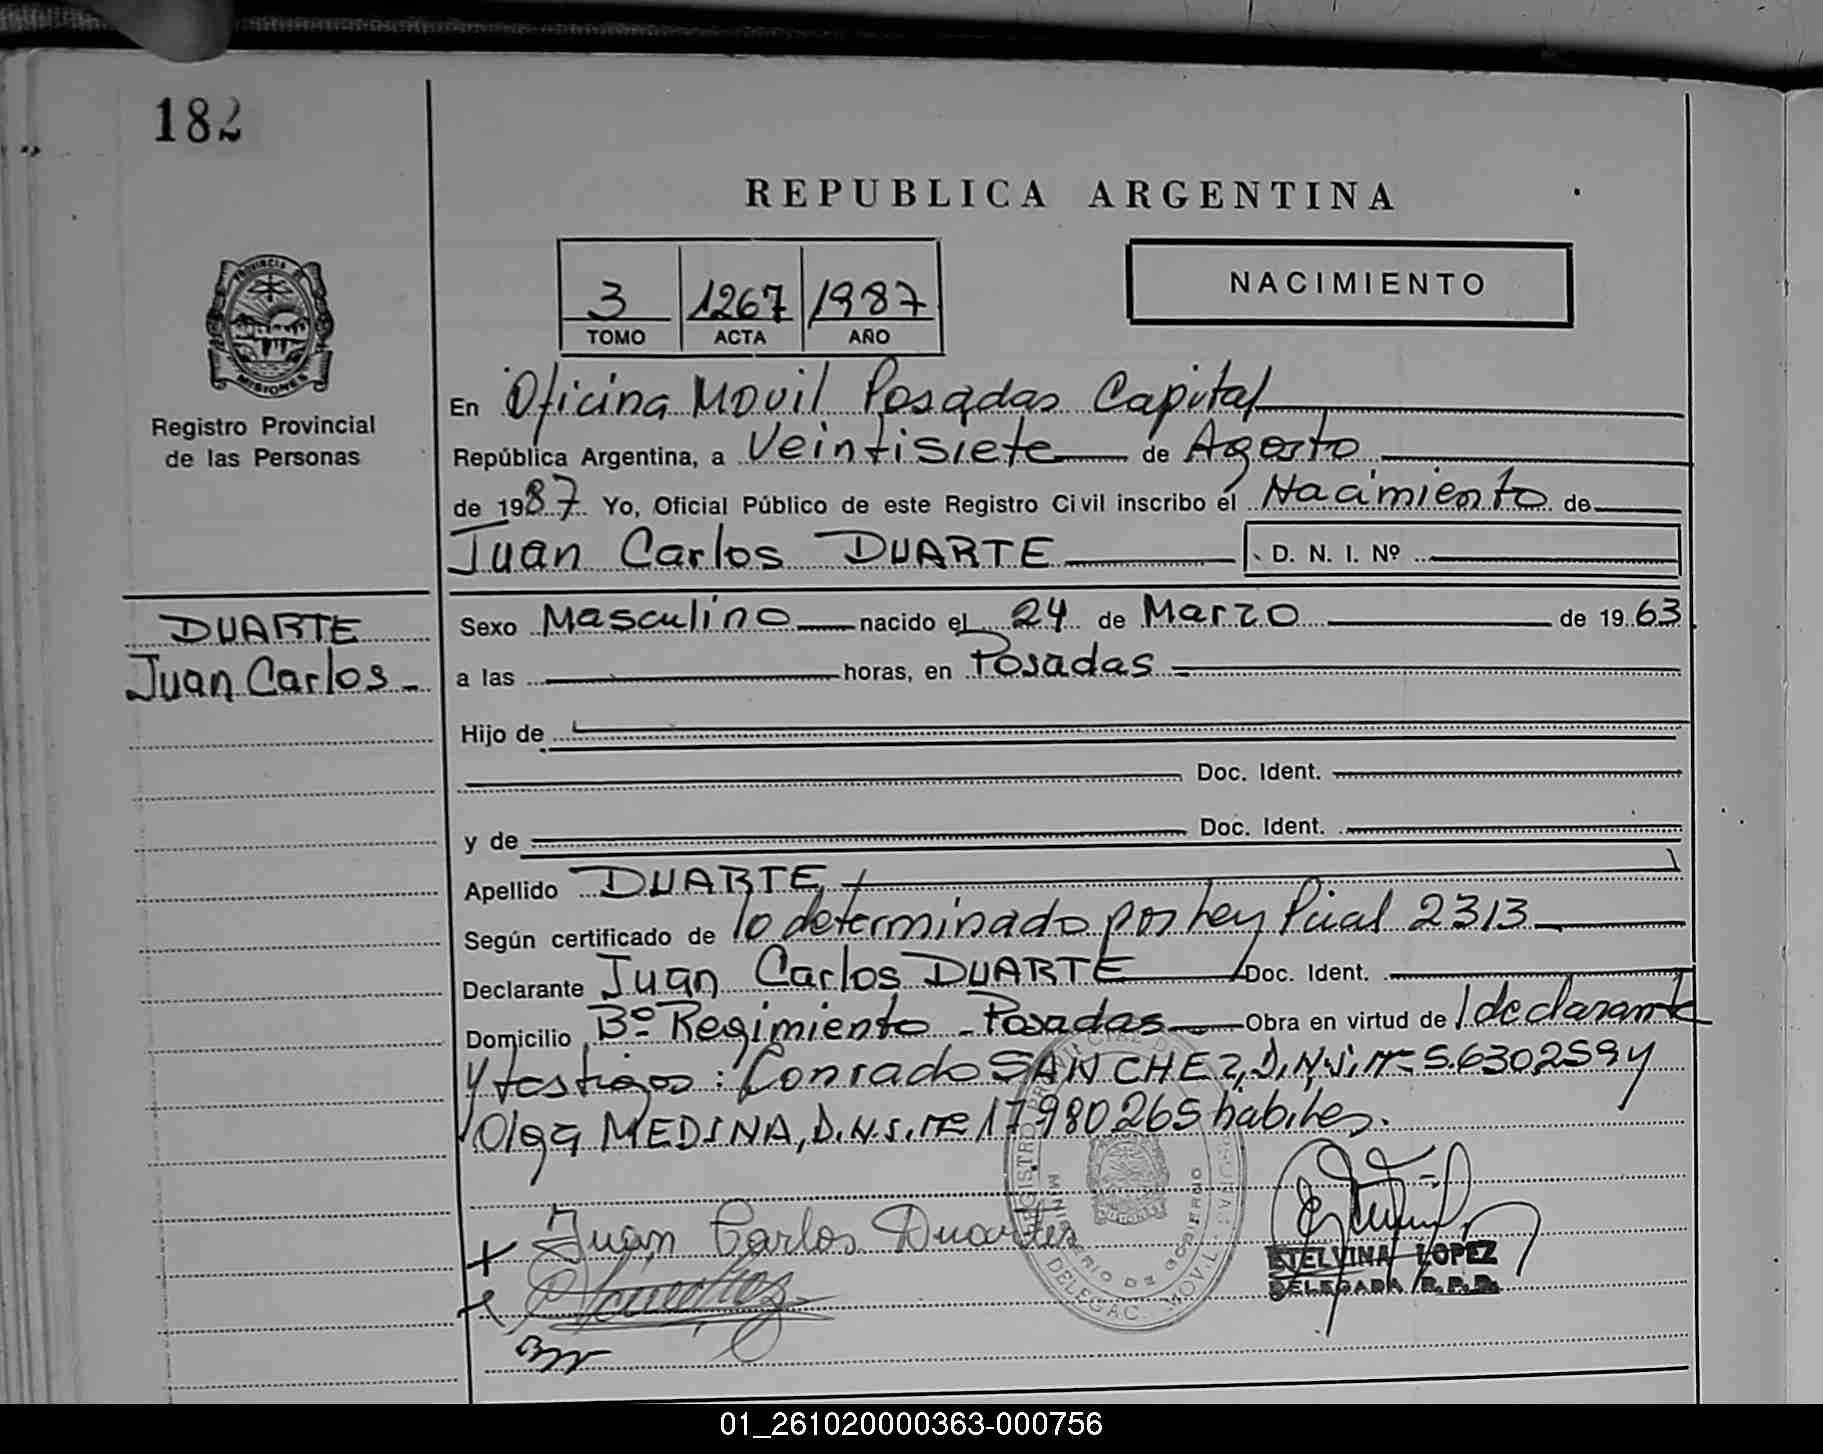 182
REPUBLICA ARGENTINA
NACIMIENTO
3 1267 1987
TOMO ACTA AÑO
PROVINCIA DE
MISIONES
Registro Provincial
de las Personas
En Oficina Movil Posadas Capital
República Argentina, a Veintisiete de Agosto
de 1987 Yo, Oficial Público de este Registro Civil inscribo el Nacimiento de
Juan Carlos DUARTE D. N. I. Nº
DUARTE
Juan Carlos
Sexo Masculino nacido el 24 de Marzo de 1963
a las horas, en Posadas
Hijo de
Doc. Ident.
y de Doc. Ident.
Apellido DUARTE
Según certificado de lo determinado por Ley Pcial 2313
Declarante Juan Carlos DUARTE Doc. Ident.
Domicilio Bº Regimiento - Posadas Obra en virtud de l declarante
y testigos: Conrado SANCHEZ, D.N.I. nº 5.630259 y
Olga MEDINA, D.N.I. nº 17980265 habiles.
Juan Carlos Duarte
MINISTERIO DE GOBIERNO
DELEGAC. MOVIL
ETELVINA LOPEZ
DELEGADA R.P.P.
01_261020000363-000756